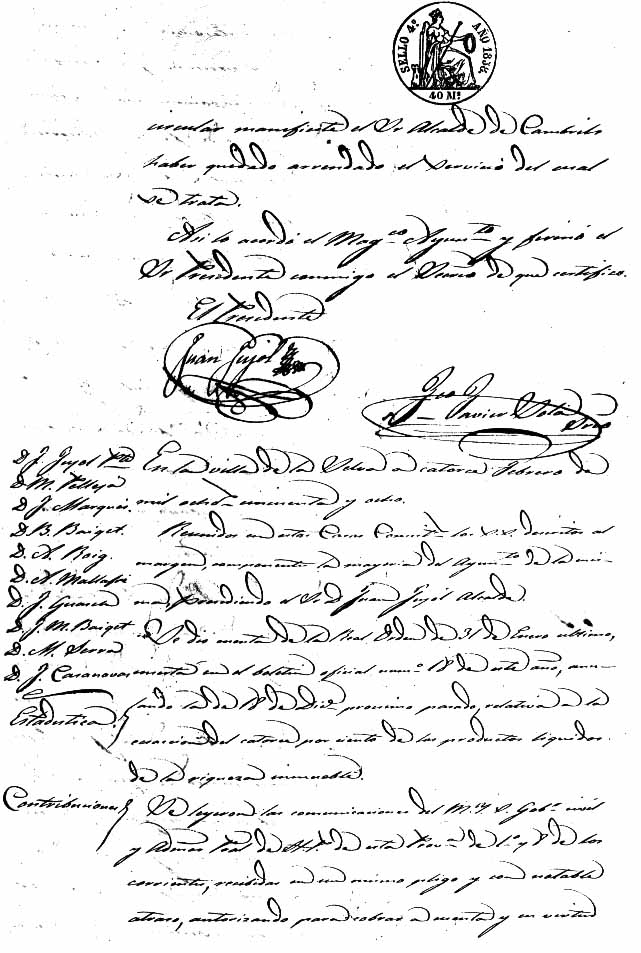 SELLO 4º AÑO 1858.
40 Ms
circular manifieste el Sr Alcalde de Cambrils
haber quedado arrendado el servicio del cual
se trata.
Asi lo acordó el Magco Ayunto y firmó el
Sr Presidente conmigo el Secrio de que certifico.
El Presidente
Juan Pujol
Javier
Srio
D. J. Pujol Pte
D. M. Pellejá
D. J. Marqués.
D. B. Baiget.
D. A. Roig.
D. A. Mallafré
D. J.
D. J. M. Baiget
D. M. Serra
D. J. Casanovas
En la villa de la Selva a catorce Febrero de
mil ochocs cincuenta y ocho.
Reunidos en estas Casas Consists los S.S. descritos al
margen componente la mayoria del Ayunto de la mis-
ma presidiendo el Sr D. Juan Pujol Alcalde.
Se dió cuenta de la Real Orden de 31 de Enero último,
inserta en el boletin oficial numo 18 de este año,
la de 18 de Dice proximo pasado, relativa a la
del catorce por ciento de los productos liquidos
de la riqueza inmueble.
Estadística.
Contribuciones
Se leyeron las comunicaciones del M. Y. S. Gobor civil
y Admor Pral de Hda de esta Prova de 1º y 8 de los
corrientes, recibidas en un mismo pliego y con notable
atraso, autorizando para cobrar a cuenta y en virtud